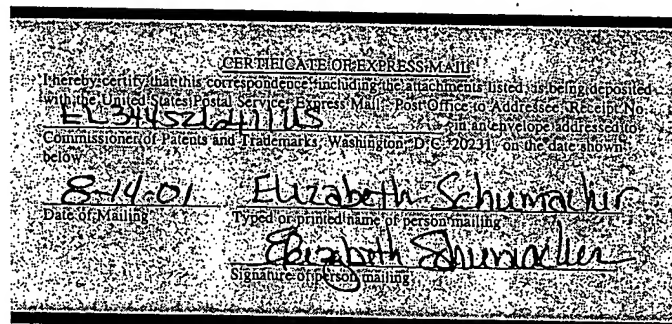 CERTIFICATE OF EXPRESS MAIL
I hereby certify that this correspondence, including the attachments listed, is being deposited
with the United States Postal Service, Express Mail - Post Office to Addressee, Receipt No.
in an envelope addressed to
Commissioner of Patents and Trademarks, Washington, D.C. 20231, on the date shown
below.
8-14-01 Elizabeth Schumacher
Date of Mailing Typed or printed name of person mailing
Elizabeth Schumacher
Signature of person mailing